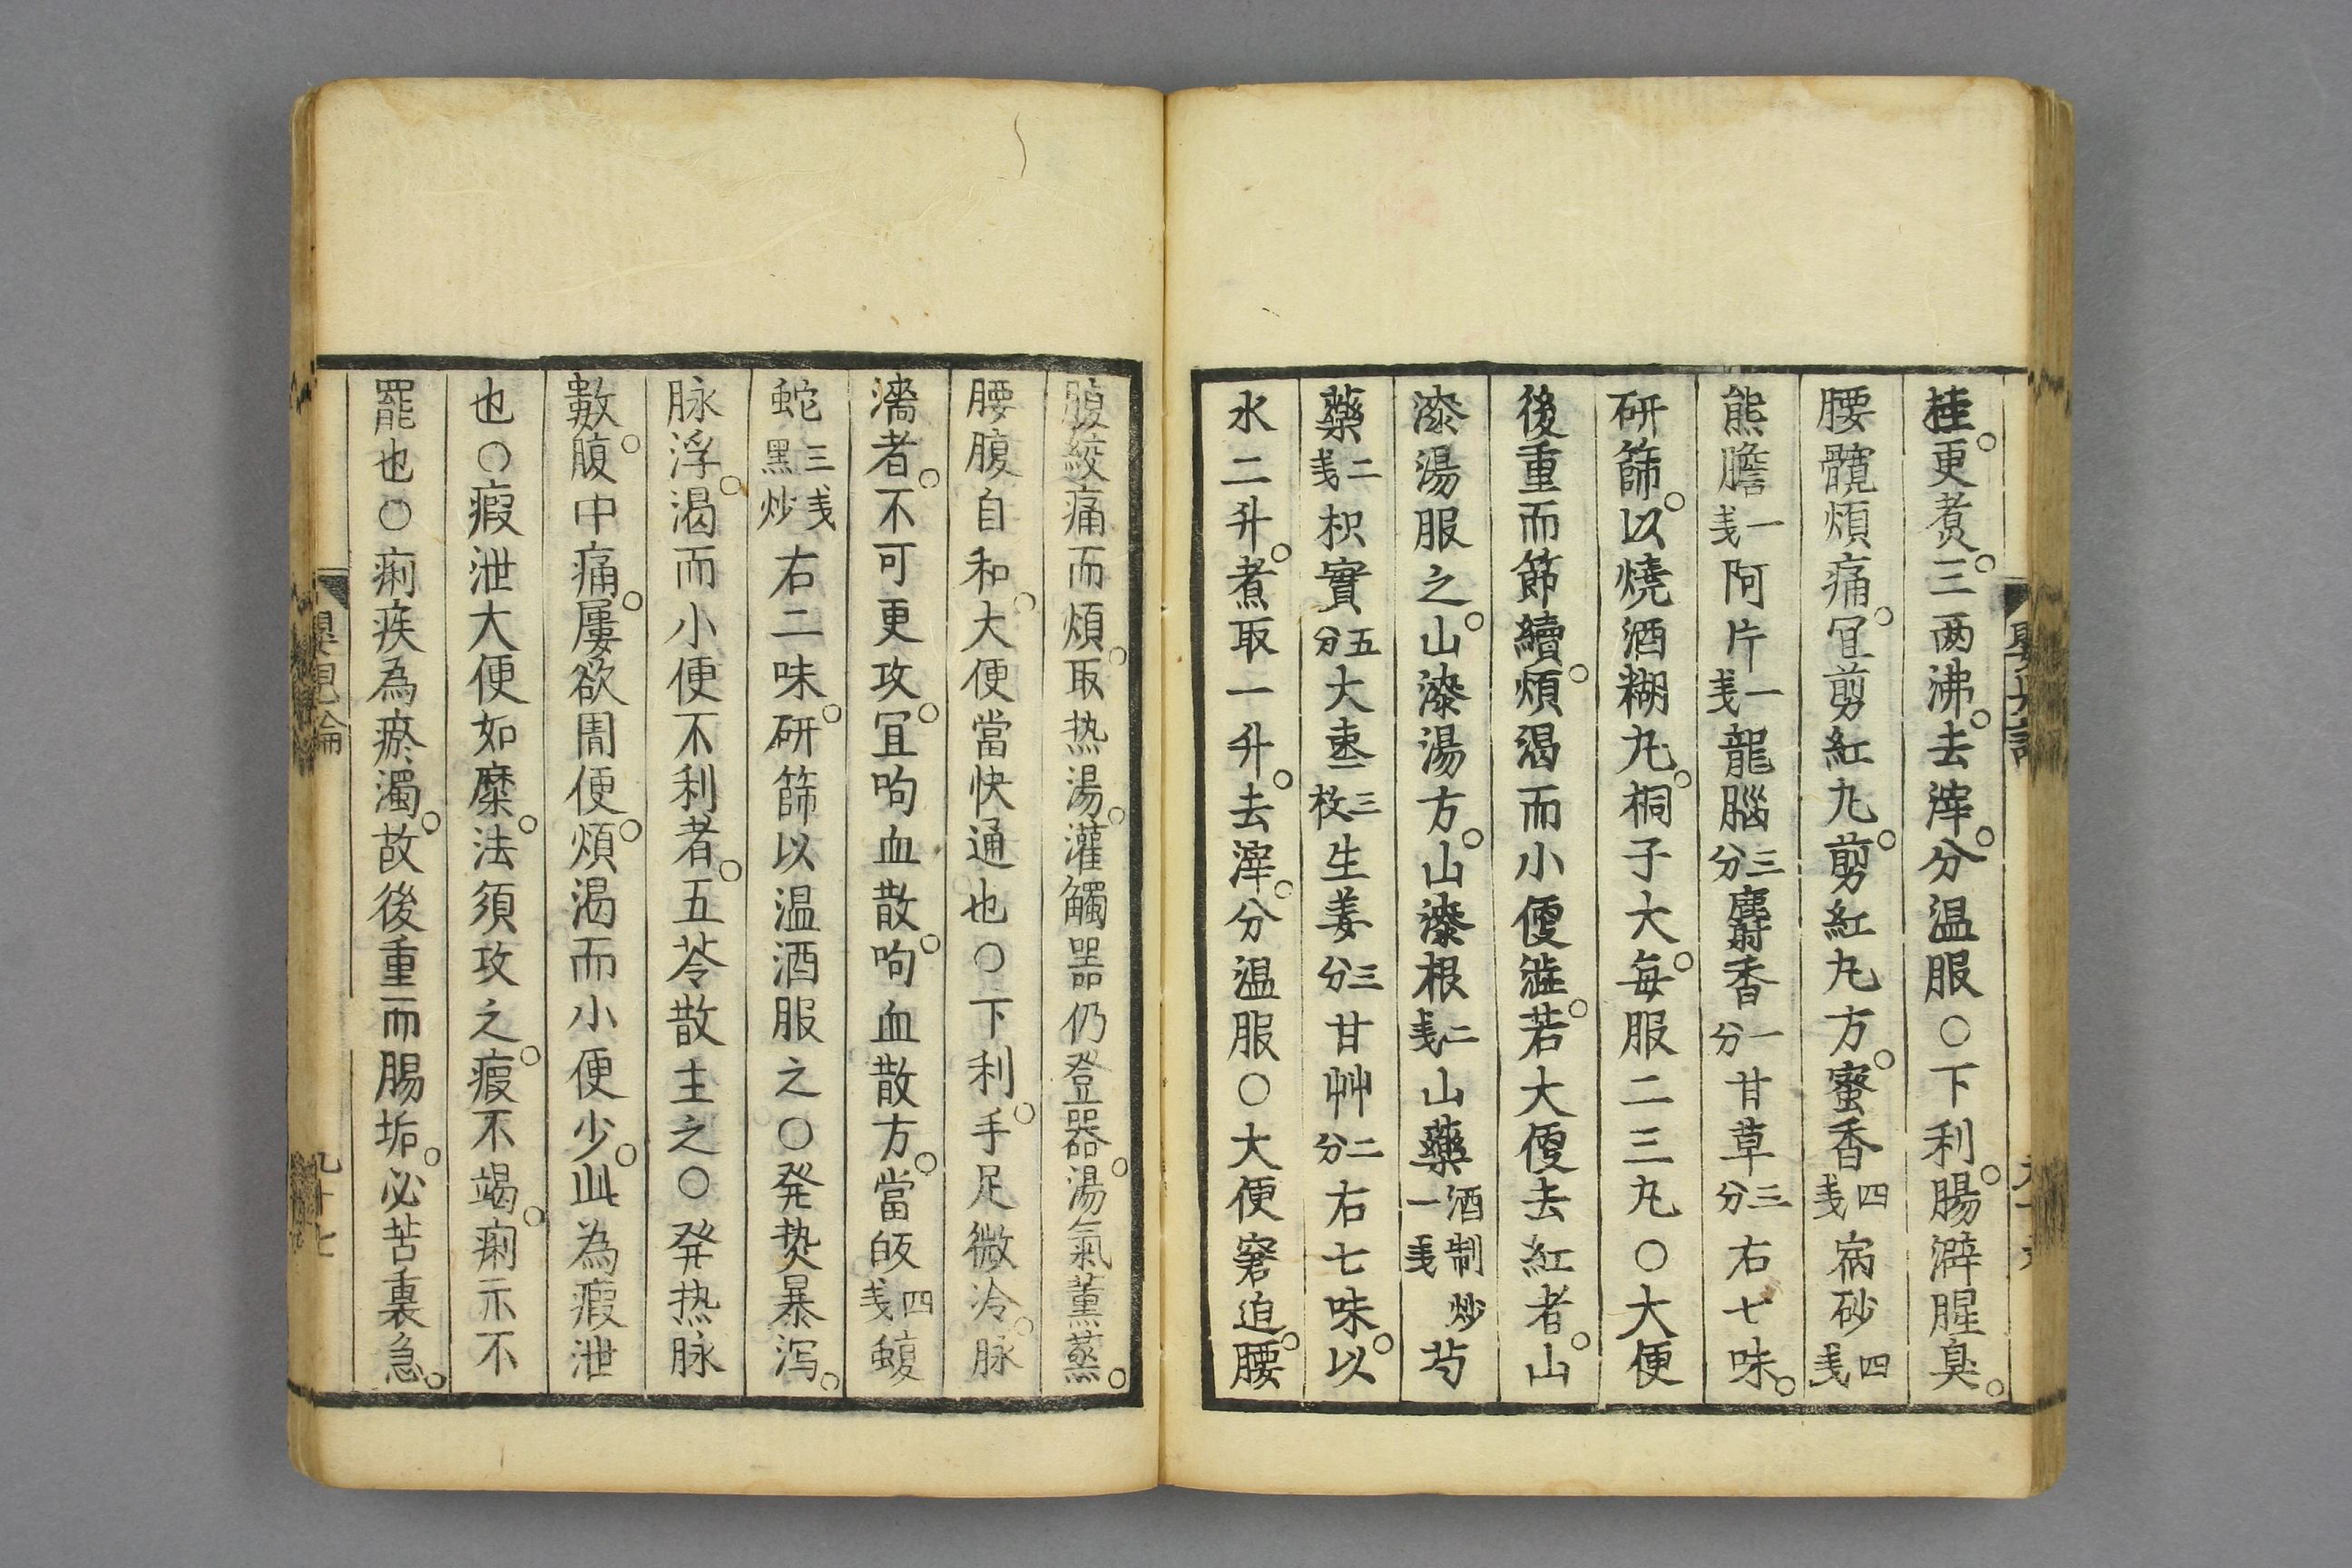 桂。更煮。三两沸。去滓。分温服〇下利。腸澼腥臭。
腰髖煩痛。冝剪紅丸。剪紅丸方。蜜香四戔病砂四戔
熊膽一戔阿片一戔龍腦三分麝香一分甘草三分右七味。
研篩。以燒酒糊丸。桐子大。每服二三丸〇大便
後重而節續。煩渴而小便澁。若大便去紅者。山
漆湯服之。山漆湯方。山漆根二戔山藥酒制炒一戔芍
藥二戔枳實五分大棗三枚生姜三分甘艸二分右七味。以
水二升。煮取一升。去滓。分温服〇大便窘迫。腰
腹絞痛而煩。取热湯。灌觸器仍登器。湯氣薰蒸。
腰腹自和。大便當快通也〇下利。手足微冷。脉
濡者。不可更攻。冝呴血散。呴血散方。當皈四戔蝮
蛇三戔黑炒右二味。研篩以温酒服之〇発热暴泻。
脉浮。渴而小便不利者。五苓散主之〇発热脉
數。腹中痛。屢欲圊便。煩渴而小便少。此為瘕泄
也〇瘕泄大便如糜。法須攻之。瘕不竭。痢示不
罷也〇痢疾為瘀濁。故後重而腸垢。必苦裏急。
九十七